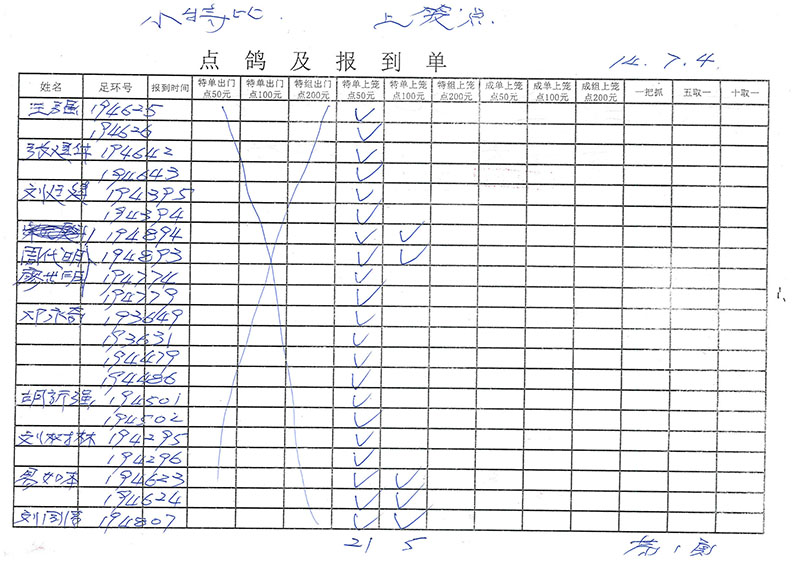 小特比 上笼点
点鸽及报到单 14.7.4.
姓名 足环号 报到时间 特单出门点50元 特单出门点100元 特组出门点200元 特单上笼点50元 特单上笼点100元 特组上笼点200元 成单上笼点50元 成单上笼点100元 成组上笼点200元 一把抓 五取一 十取一
王强 194625 ✓
194626 ✓
张建华 194642 ✓
194643 ✓
刘 194395 ✓
194394 ✓
194894 ✓ ✓
周代明 194893 ✓ ✓
廖世明 194774 ✓
194779 ✓
邓永奇 193649 ✓
193631 ✓
194479 ✓
194486 ✓
胡新强 194501 ✓
194502 ✓
刘树林 194295 ✓
194296 ✓
易如本 194623 ✓ ✓
194624 ✓ ✓
刘 194807 ✓ ✓
21 5